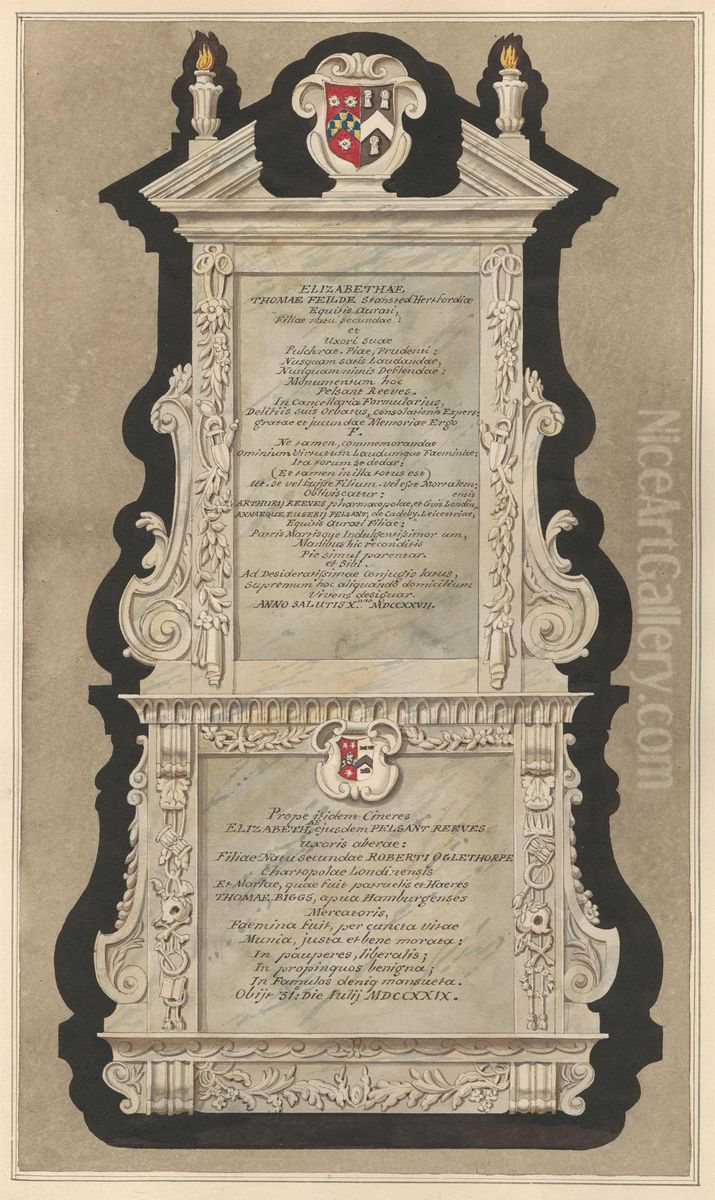 ELIZABETHAE
THOMAE FEILDE Stansted Hertfordiæ
Equitis Aurati,
Filiae natu secundae:
et
Uxori suae
Pulchrae, Piae, Prudenti:
Nusquam satis Laudandae,
Nunquam nimis Deflendae:
Monumentum hoc
Pelsant Reeves.
In Cancellaria Formularius,
Delitiis suis Orbatus, consolationis Expers;
gratae et jucundae Memoriae Ergo
F.
Ne tamen, commemorandae
Ominium Virtutum Laudumque Faemintae;
Ita torum se dedat;
(Et tamen in illa totus est)
Ut. se vel fuisse Filium. vel esse Mortalem;
Obliviscatur: ensis
ARTHURIJ REEVES pharmacopolae, et Civis Londin,
ANNAEQUE EUSEBIJ PELSANT, de Cadeby Leicestriae,
Equitis Aurati Filiae;
Patris Matrisque Indulgentissimor um,
Manibus hic reconditis
Pie simul parentar.
et Sibi.
Ad Desideratissimae Conjugis latus,
Supremum hoc aliquando domicilium
Vivens designar.
ANNO SALUTIS X.nae MDCCXXVII.
Prope itidem Cineres
ELIZABETHAE, ejusdem PELSANT REEVES
uxoris alterae:
Filiae Natu secundae ROBERTI OGLETHORPE
Chartopolae Londinensis
Et Mariae, quae fuit patruelis et Haeres
THOMAE BIGGS, apua Hamburgenses
Mercatoris,
Faemina fuit, per cuncta vitae
Munia, justa et bene morata;
In pauperes, liberalis;
In propinquos benigna;
In Famulos deniq mansueta.
Obijt 31: Die Iulij MDCCXXIX.
NiceArtGallery.com